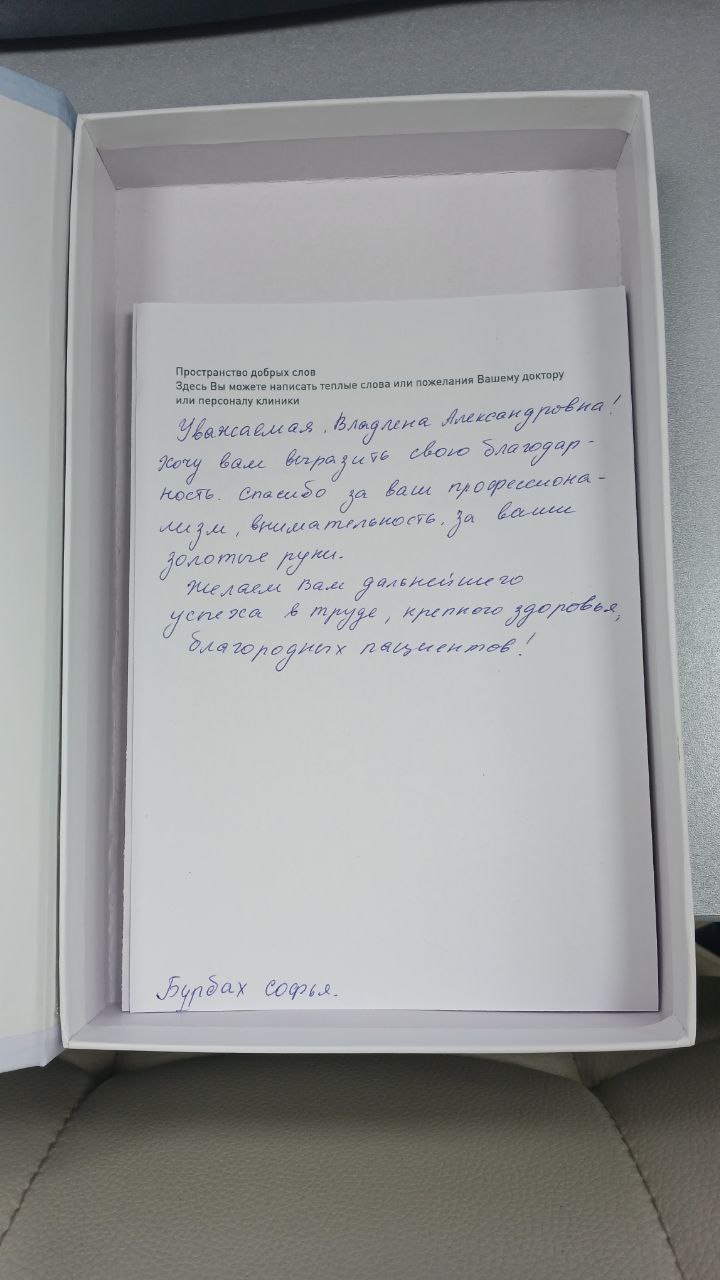 Пространство добрых слов
Здесь Вы можете написать теплые слова или пожелания Вашему доктору
или персоналу клиники
Уважаемая, Владлена Александровна!
Хочу вам выразить свою благодар-
ность. Спасибо за ваш профессиона-
лизм, внимательность, за ваши
золотые руки.
Желаем Вам дальнейшего
успеха в труде, крепкого здоровья,
благородных пациентов!
Бурбах Софья.